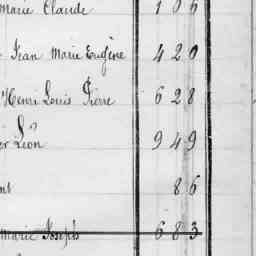 Marie Claude 106
Jean Marie Eugène 420
Henri Louis Pierre 628
er Léon 949
nt 86
Marie Joseph 683